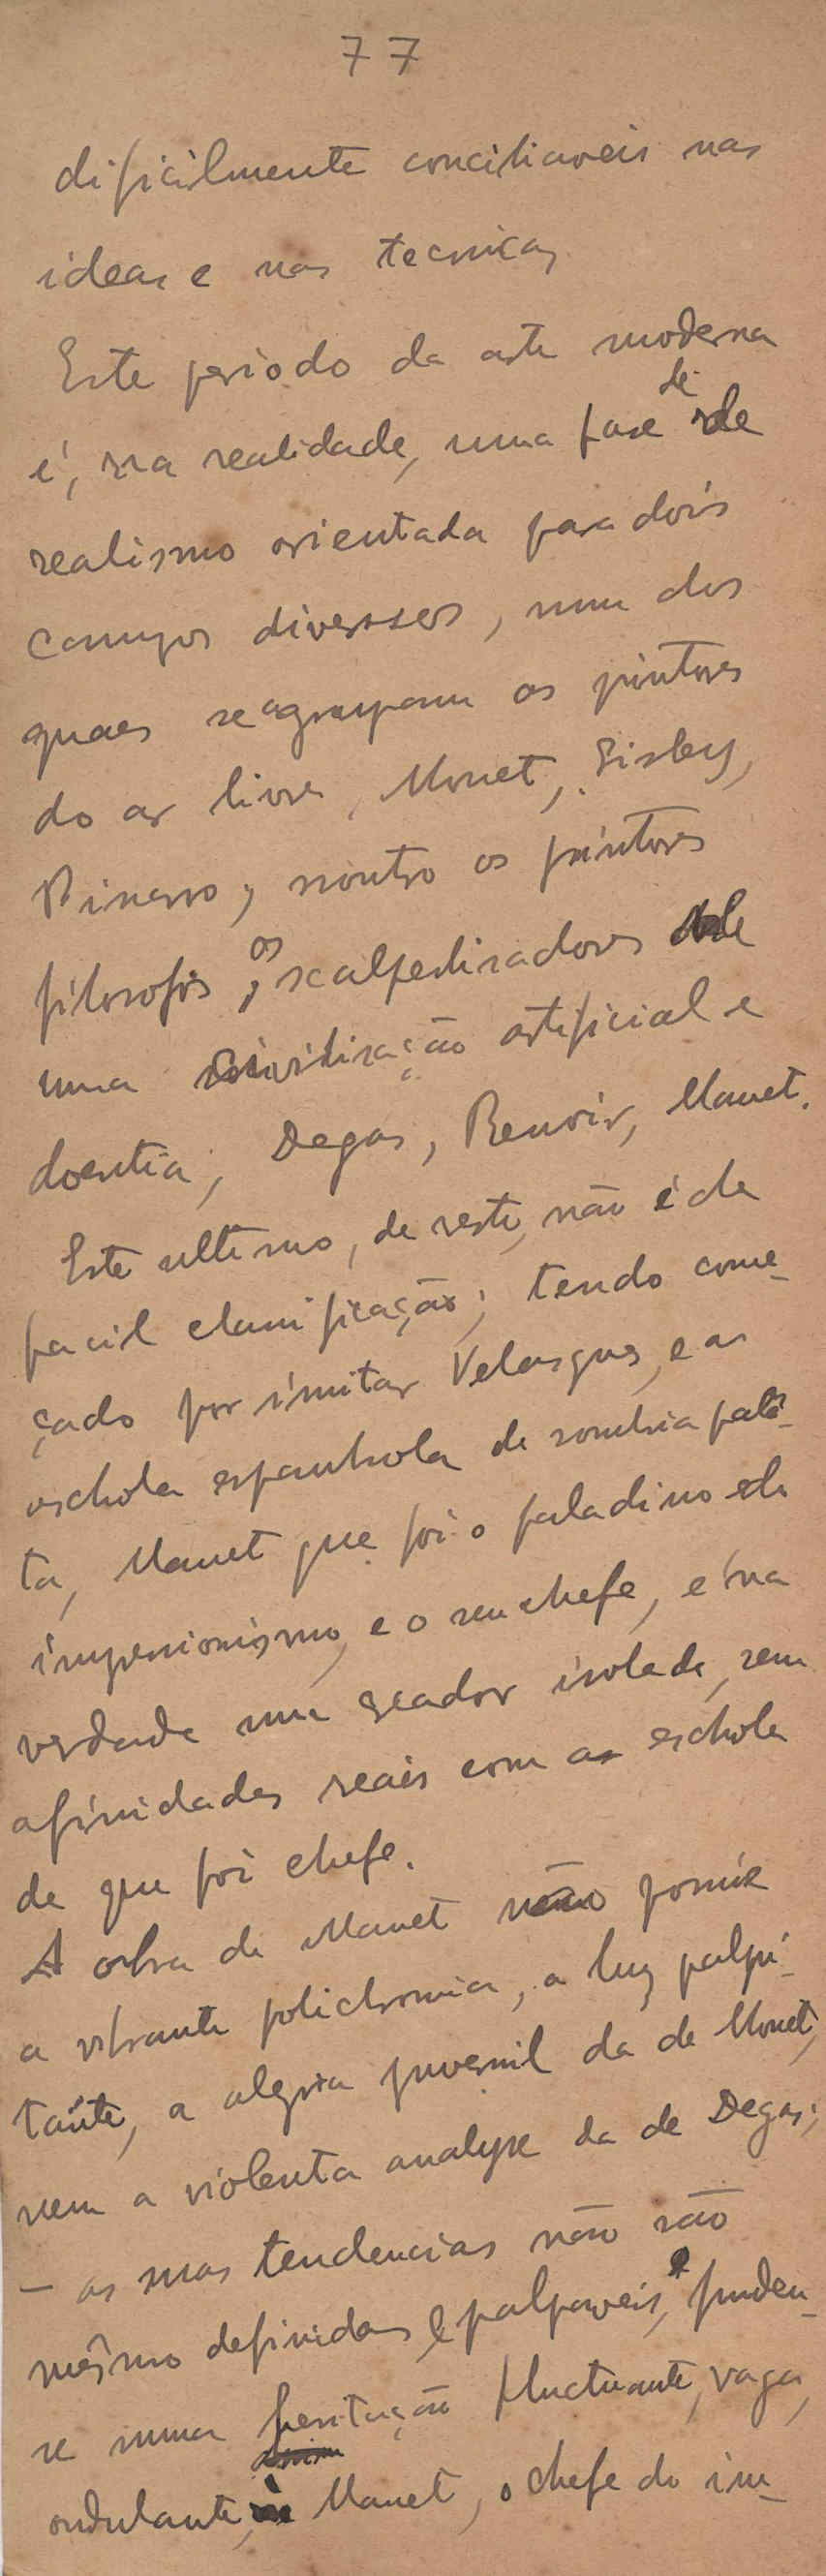 77
dificilmente conciliaveis nas
ideas e nas tecnicas
Este periodo da arte moderna
é, na realidade, uma fase de
realismo orientada para dois
campos diversos, num dos
quaes se agrupam os pintores
do ar livre, Monet, Sisley,
Pissarro, noutro os pintores
filosofos, os scalpelisadores de
uma civilisação artificial e
doentia, Degas, Renoir, Manet.
Este ultimo, de resto, não é de
facil classificação; tendo come-
çado por imitar Velasques, e a
eschola espanhola de sombria palê-
ta, Manet que foi o paladino do
impressionismo, e o seu chefe, é na
verdade um creador isolado, sem
afinidades reais com a eschola
de que foi chefe.
A obra de Manet não possúe
a vibrante polichromia, a luz palpi-
tante, a alegria juvenil da de Monet,
nem a violenta analyse da de Degas;
— as suas tendencias não são
mesmo definidas e palpaveis, e fundem-
se numa hesitação fluctuante, vaga,
ondulante, Manet, o chefe do im-